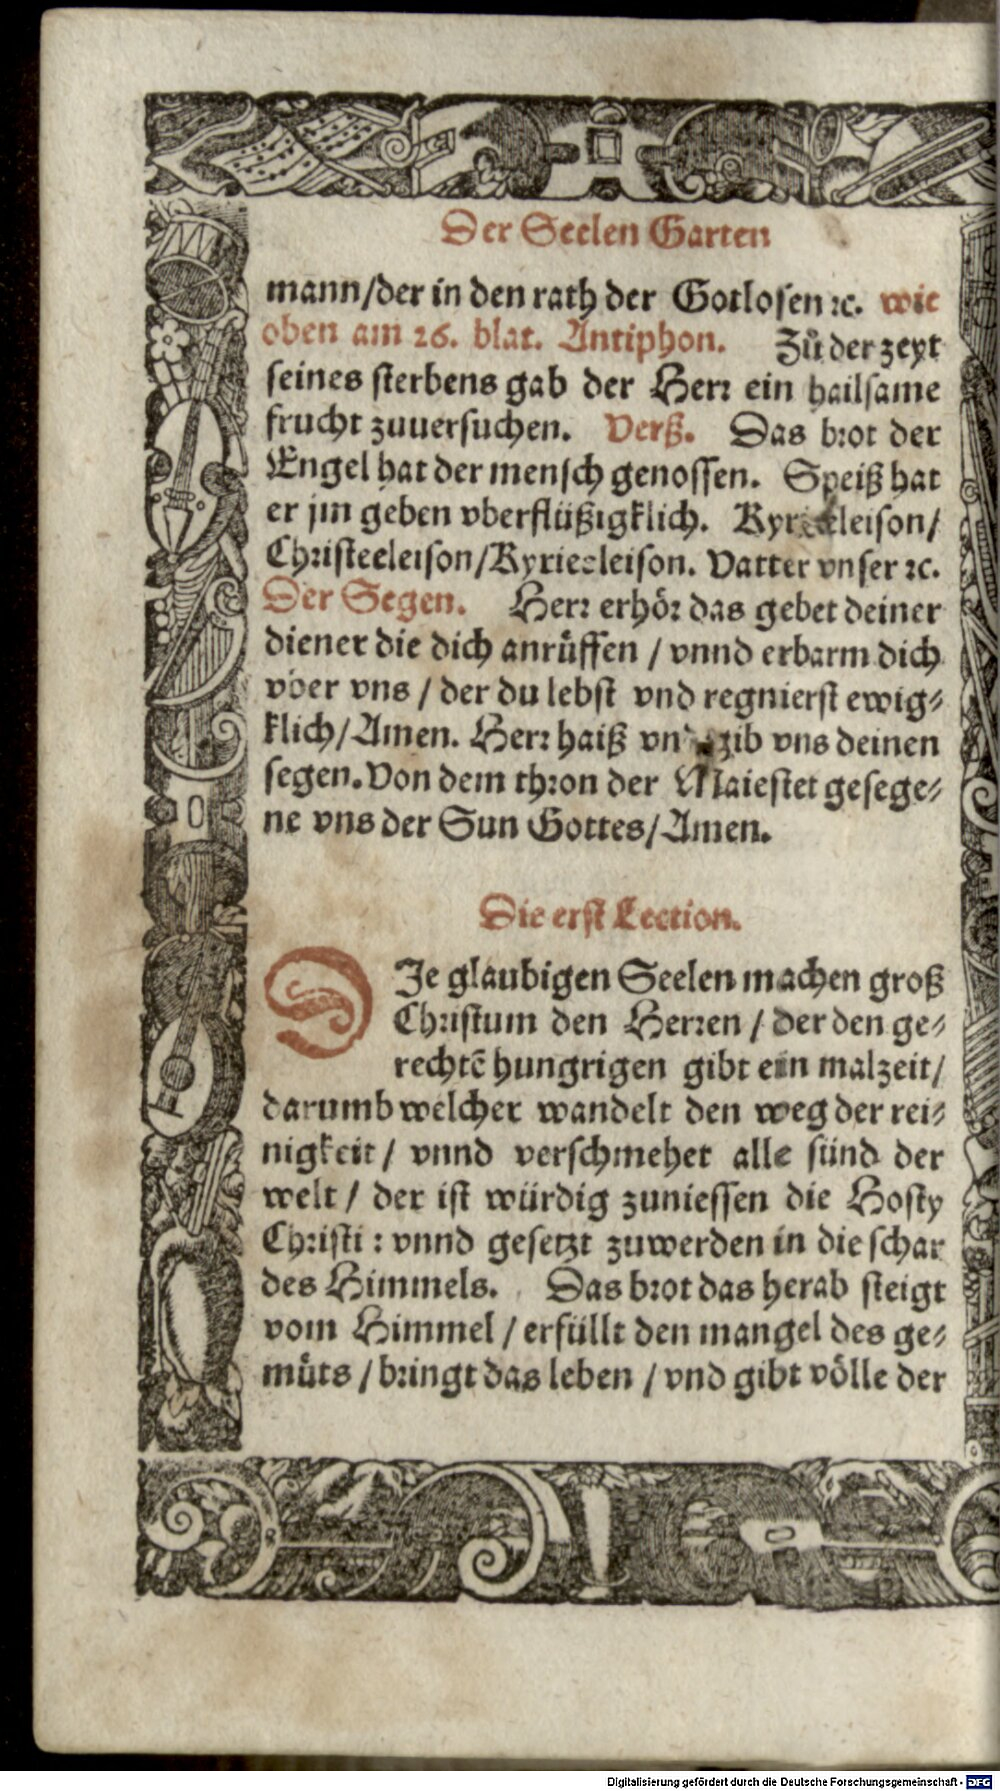 Der Seelen Garten
mann/der in den rath der Gotlosen ꝛc. wie
oben am 26. blat. Antiphon. Zů der zeyt
seines sterbens gab der Herr ein hailsame
frucht zuuersuchen. Verß. Das brot der
Engel hat der mensch genossen. Speiß hat
er jm geben vberflüßigklich. Kyrieeleison/
Christeeleison/Kyrieeleison. Vatter vnser ꝛc.
Der Segen. Herr erhör das gebet deiner
diener die dich anrüffen / vnnd erbarm dich
vber vns / der du lebst vnd regnierst ewig⸗
klich/Amen. Herr haiß vnd gib vns deinen
segen. Von dem thron der Maiestet gesege⸗
ne vns der Sun Gottes/Amen.
Die erst Lection.
DJe glaubigen Seelen machen groß
Christum den Herren / der den ge⸗
rechtē hungrigen gibt ein malzeit/
darumb welcher wandelt den weg der rei⸗
nigkeit / vnnd verschmehet alle sünd der
welt / der ist würdig zuniessen die Hosty
Christi : vnnd gesetzt zuwerden in die schar
des Himmels. Das brot das herab steigt
vom Himmel / erfüllt den mangel des ge⸗
müts / bringt das leben / vnd gibt völle der
Digitalisierung gefördert durch die Deutsche Forschungsgemeinschaft - DFG